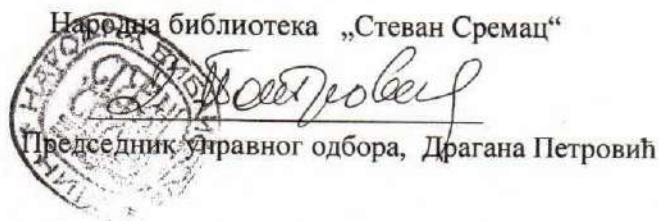 Народна библиотека „Стеван Сремац“
Д Петровић
Председник управног одбора, Драгана Петровић